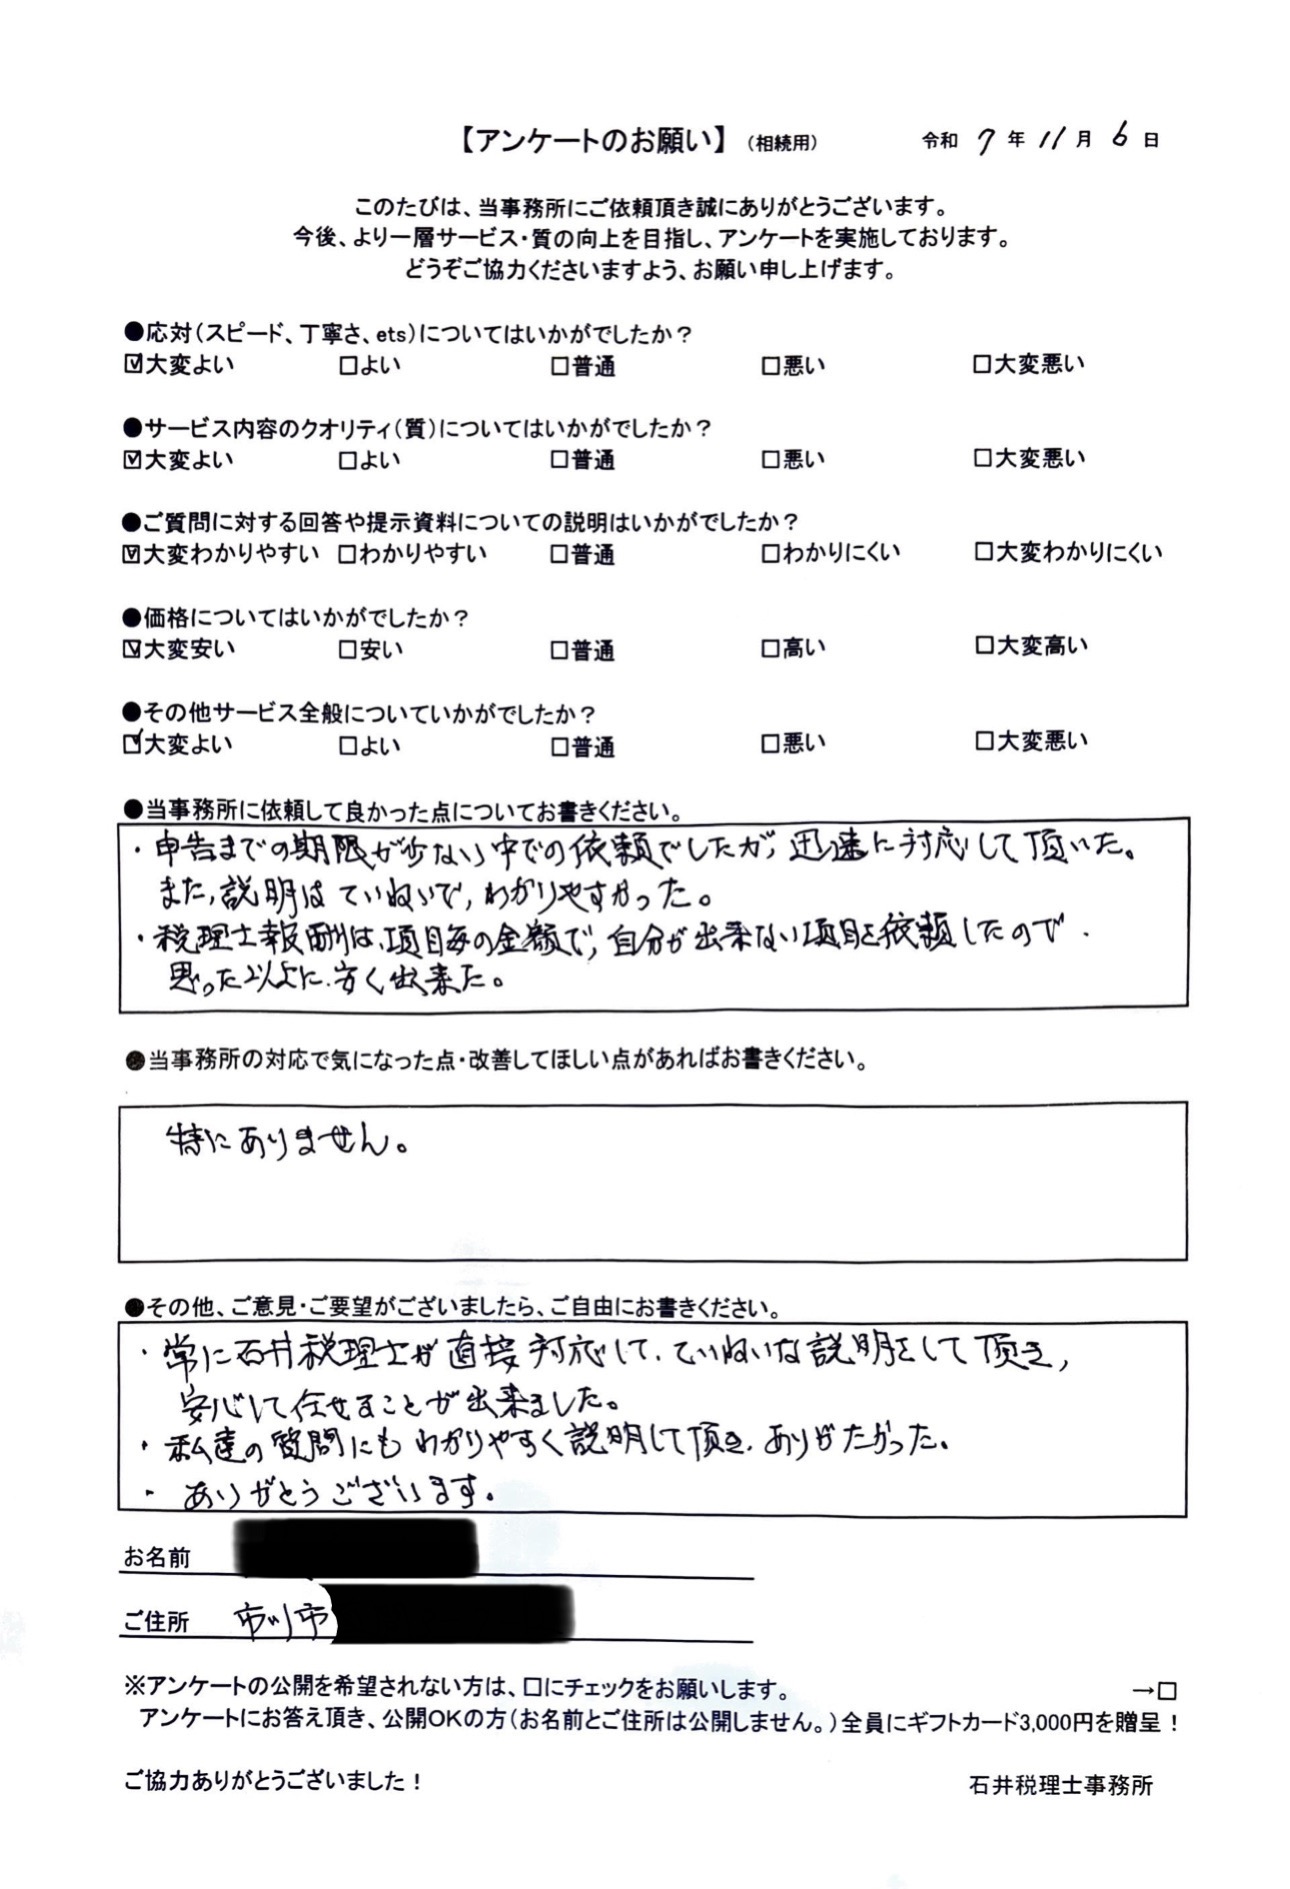 【アンケートのお願い】（相続用） 令和 7 年 11 月 6 日
このたびは、当事務所にご依頼頂き誠にありがとうございます。
今後、より一層サービス・質の向上を目指し、アンケートを実施しております。
どうぞご協力くださいますよう、お願い申し上げます。
●応対（スピード、丁寧さ、ets）についてはいかがでしたか？
☑大変よい □よい □普通 □悪い □大変悪い
●サービス内容のクオリティ（質）についてはいかがでしたか？
☑大変よい □よい □普通 □悪い □大変悪い
●ご質問に対する回答や提示資料についての説明はいかがでしたか？
☑大変わかりやすい □わかりやすい □普通 □わかりにくい □大変わかりにくい
●価格についてはいかがでしたか？
☑大変安い □安い □普通 □高い □大変高い
●その他サービス全般についていかがでしたか？
☑大変よい □よい □普通 □悪い □大変悪い
●当事務所に依頼して良かった点についてお書きください。
・申告までの期限が少ない中での依頼でしたが、迅速に対応して頂いた。
また、説明はていねいで、わかりやすかった。
・税理士報酬は、項目毎の金額で、自分が出来ない項目を依頼したので、
思った以上に、安く出来た。
●当事務所の対応で気になった点・改善してほしい点があればお書きください。
特にありません。
●その他、ご意見・ご要望がございましたら、ご自由にお書きください。
・常に石井税理士が直接対応して、ていねいな説明をして頂き、
安心して任せることが出来ました。
・私達の質問にもわかりやすく説明して頂き、ありがたかった。
・ありがとうございます。
お名前
ご住所 市川市
※アンケートの公開を希望されない方は、□にチェックをお願いします。 →□
アンケートにお答え頂き、公開OKの方（お名前とご住所は公開しません。）全員にギフトカード3,000円を贈呈！
ご協力ありがとうございました！ 石井税理士事務所